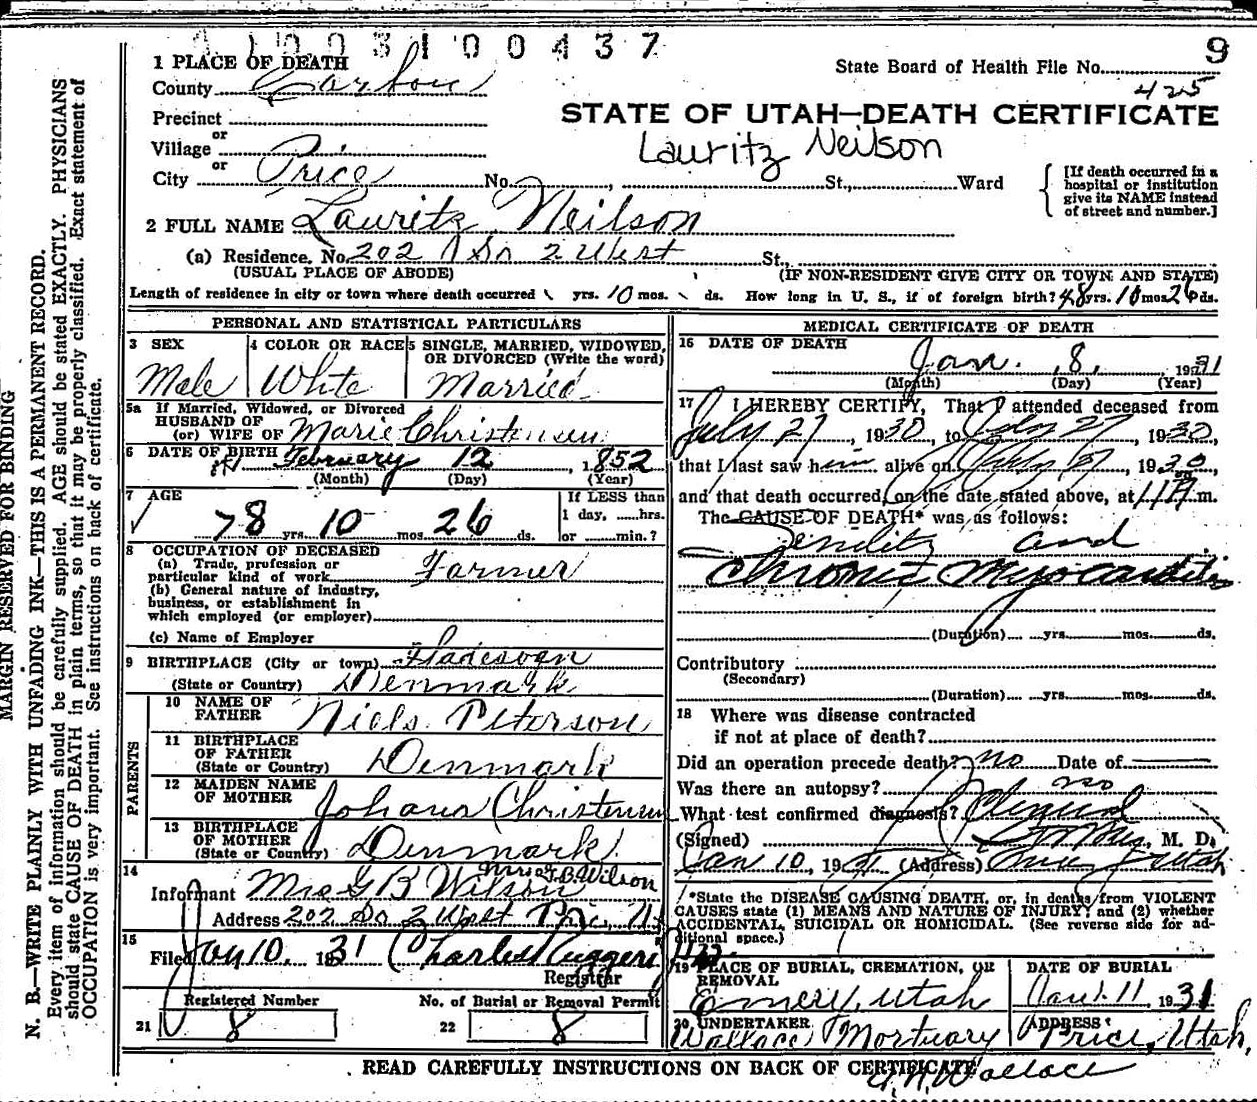 1003100437
9
State Board of Health File No.
425
1 PLACE OF DEATH
County Carbon
STATE OF UTAH—DEATH CERTIFICATE
Precinct
or
Village
Lauritz Neilson
or
City Price No. , St., Ward
[If death occurred in a
hospital or institution
give its NAME instead
of street and number.]
2 FULL NAME Lauritz Neilson
(a) Residence, No. 202 So 2 West St.,
(USUAL PLACE OF ABODE) (IF NON-RESIDENT GIVE CITY OR TOWN AND STATE)
Length of residence in city or town where death occurred yrs. 10 mos. ds. How long in U. S., if of foreign birth? 48 yrs. 10 mos. 26 ds.
PERSONAL AND STATISTICAL PARTICULARS
3 SEX
Male
4 COLOR OR RACE
White
5 SINGLE, MARRIED, WIDOWED,
OR DIVORCED (Write the word)
Married
5a If Married, Widowed, or Divorced
HUSBAND OF
(or) WIFE OF Marie Christensen
6 DATE OF BIRTH February 12, 1852
(Month) (Day) (Year)
7 AGE
78 yrs. 10 mos. 26 ds.
If LESS than
1 day, ......hrs.
or ......min.?
8 OCCUPATION OF DECEASED
(a) Trade, profession or
particular kind of work Farmer
(b) General nature of industry,
business, or establishment in
which employed (or employer)
(c) Name of Employer
9 BIRTHPLACE (City or town)
(State or Country) Denmark
PARENTS
10 NAME OF
FATHER Niels Peterson
11 BIRTHPLACE
OF FATHER
(State or Country) Denmark
12 MAIDEN NAME
OF MOTHER Johana Christensen
13 BIRTHPLACE
OF MOTHER
(State or Country) Denmark
14
Mrs G.B. Wilson
Informant Mrs G B Wilson
Address 202 So 2 West Price, Ut
15
Filed Jan 10, 1931 Charles Ruggeri
Registrar
Registered Number
21 8
No. of Burial or Removal Permit
22 8
MEDICAL CERTIFICATE OF DEATH
16 DATE OF DEATH
Jan. 8, 1931
(Month) (Day) (Year)
17 I HEREBY CERTIFY, That I attended deceased from
July 27, 1930, to July 27, 1930,
that I last saw him alive on July 27, 1930,
and that death occurred, on the date stated above, at m.
The CAUSE OF DEATH* was as follows:
Senility and
Chronic Myocarditis
(Duration) yrs. mos. ds.
Contributory
(Secondary)
(Duration) yrs. mos. ds.
18 Where was disease contracted
if not at place of death?
Did an operation precede death? no Date of
Was there an autopsy? no
What test confirmed diagnosis?
(Signed) , M. D.
Jan 10, 1931 (Address) Price Utah
*State the DISEASE CAUSING DEATH, or, in deaths from VIOLENT
CAUSES state (1) MEANS AND NATURE OF INJURY and (2) whether
ACCIDENTAL, SUICIDAL OR HOMICIDAL. (See reverse side for ad-
ditional space.)
19 PLACE OF BURIAL, CREMATION, OR
REMOVAL
Emery, Utah
DATE OF BURIAL
Jan. 11, 1931
20 UNDERTAKER
Wallace Mortuary
ADDRESS
Price, Utah,
READ CAREFULLY INSTRUCTIONS ON BACK OF CERTIFICATE
Wallace
MARGIN RESERVED FOR BINDING
N. B.—WRITE PLAINLY WITH UNFADING INK—THIS IS A PERMANENT RECORD.
Every item of information should be carefully supplied. AGE should be stated EXACTLY. PHYSICIANS
should state CAUSE OF DEATH in plain terms, so that it may be properly classified. Exact statement of
OCCUPATION is very important. See instructions on back of certificate.